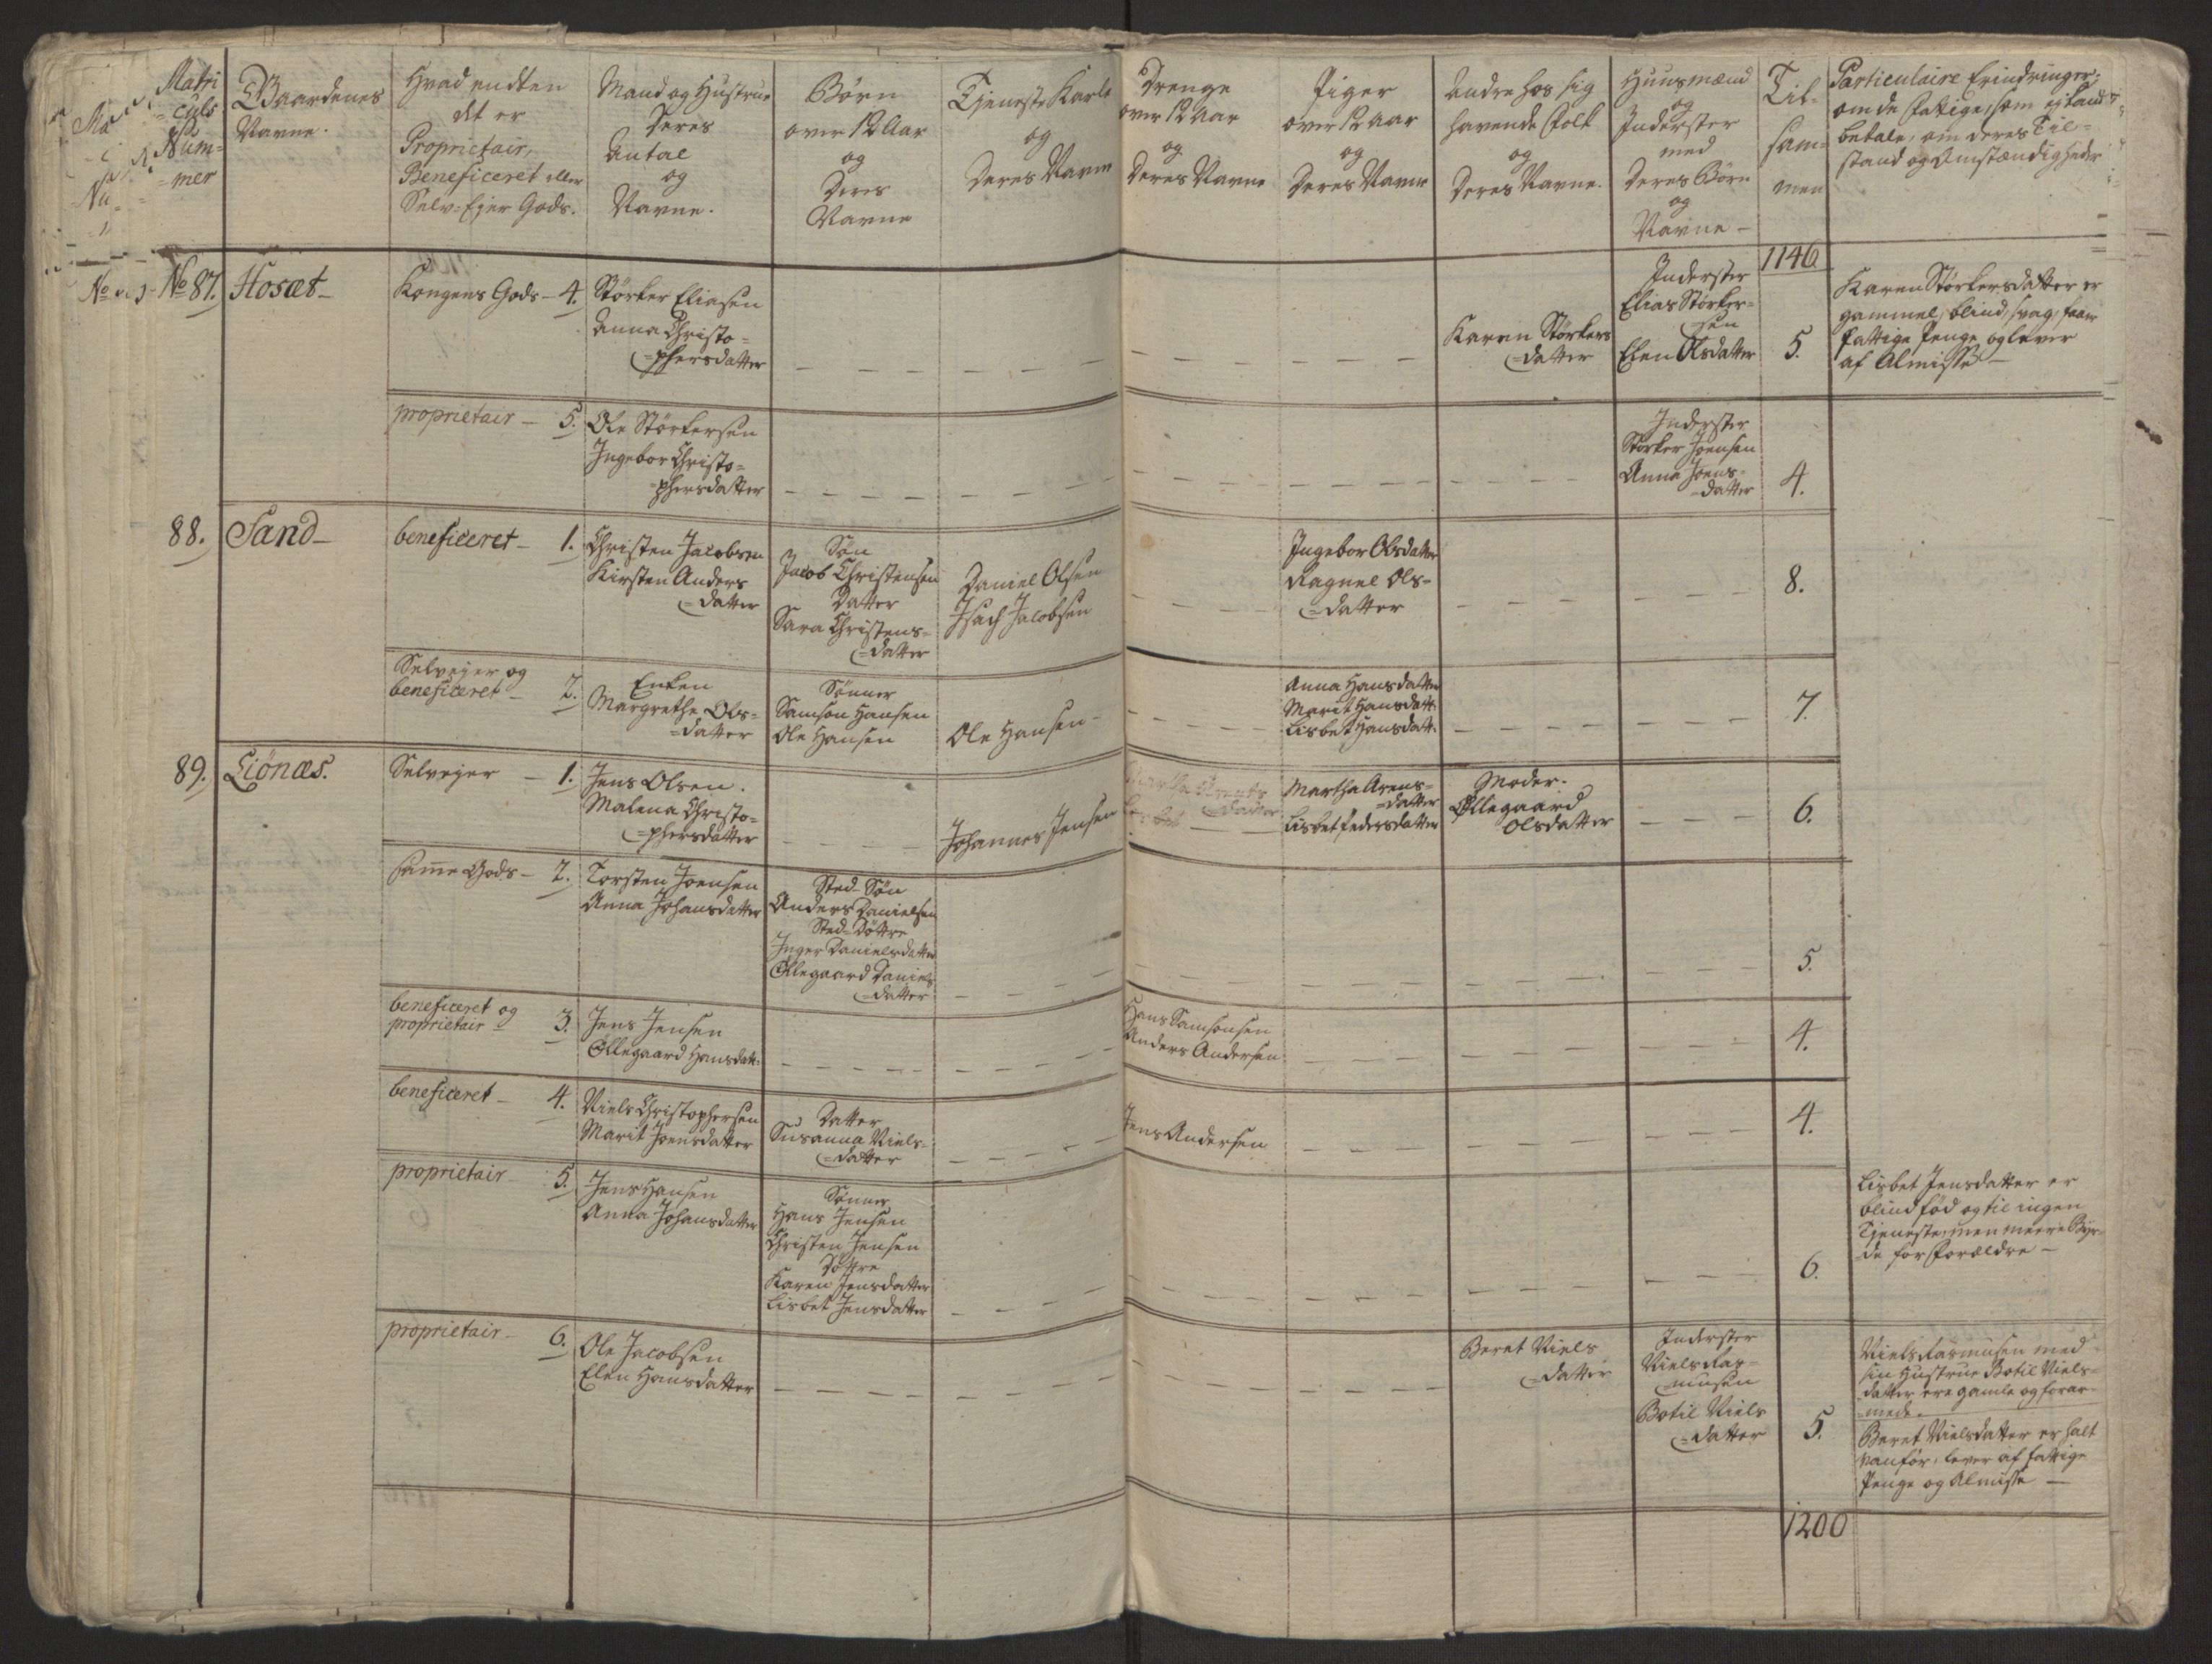 Matri
=culs
Num=
=mer
Gaardenes
Navne.
Hvad endten
det er
Proprietair,
Beneficeret eller
Selv=Ejer Gods.
Mand og Hustrue
Deres
Antal
og
Navne.
Børn
over 12 Aar
og
Deres
Navne
Tjeneste Karle
og
Deres Navne
Drenge
over 12 Aar
og
Deres Navne
Piger
over 12 Aar
og
Deres Navne
Andre hos sig
havende Folk
og
Deres Navne.
Huusmænd
og
Inderster
med
Deres Børn
og
Navne –
Til=
sam=
men
Particulaire Erindringer;
om de Fattige, som ej kand
betale, om deres Til=
stand og Omstændigheder
1146
No 87. Hosæt –
Kongens Gods – 4.
Størker Eliasen
Anna Christo=
=phersdatter
Karen Størkers
=datter
Inderster
Elias Størker=
=sen
Elen Olsdatter
5.
Karen Størkersdatter er
gammel, blind, svag, faar
fattige Penge og lever
af Almisse –
proprietair – 5.
Ole Størkersen
Ingebor Christo=
=phersdatter
Inderster
Størker Joensen
Anna Joens=
=datter
4.
88. Sand –
beneficeret – 1.
Christen Jacobsen
Kirsten Anders
=datter
Søn
Jacob Christensen
Datter
Sara Christens=
=datter
Daniel Olsen
Isach Jacobsen
Ingebor Olsdatter
Ragnel Ols=
=datter
8.
Selvejer og
beneficeret – 2.
Enken
Margrethe Ols=
=datter
Sønner
Samson Hansen
Ole Hansen
Ole Hansen –
Anna Hansdatter
Marit Hansdatt:
Lisbet Hansdatt:
7.
89. Liønæs.
Selvejer – 1.
Jens Olsen.
Malena Christo=
=phersdatter
Johannes Jensen
Martha Arents
=datter
Lisbet
Martha Arens=
=datter
Lisbet Pedersdatter
Moder.
Ellegaard
Olsdatter
6.
samme Gods – 2.
Torsten Joensen
Anna Johansdatter
Sted-Søn
Anders Danielsen
Sted=Døttre
Inger Danielsdatter
Ellegaard Daniels
=datter
5.
beneficeret og
proprietair – 3.
Jens Jensen
Ellegaard Hansdatt:
Hans Samsonsen
Anders Andersen
4.
beneficeret – 4.
Niels Christophersen
Marit Joensdatter
Datter
Susanna Niels=
=datter
Jens Andersen
4.
proprietair – 5.
Jens Hansen
Anna Johansdatter
Sønner
Hans Jensen
Christen Jensen
Døttre
Karen Jensdatter
Lisbet Jensdatter
6.
Lisbet Jensdatter er
blind fød og til ingen
Tjeneste, men meere Byr=
=de for Forældre –
proprietair – 6.
Ole Jacobsen
Elen Hansdatter
Beret Niels
=datter
Inderster
Niels Ras=
=musen
Botil Niels
=datter
5.
Niels Rasmusen med
sin Hustrue Botil Niels=
datter ere gamle og forar=
=mede.
Beret Nielsdatter er halt
vanfør, lever af fattige
Penge og Almisse –
1200